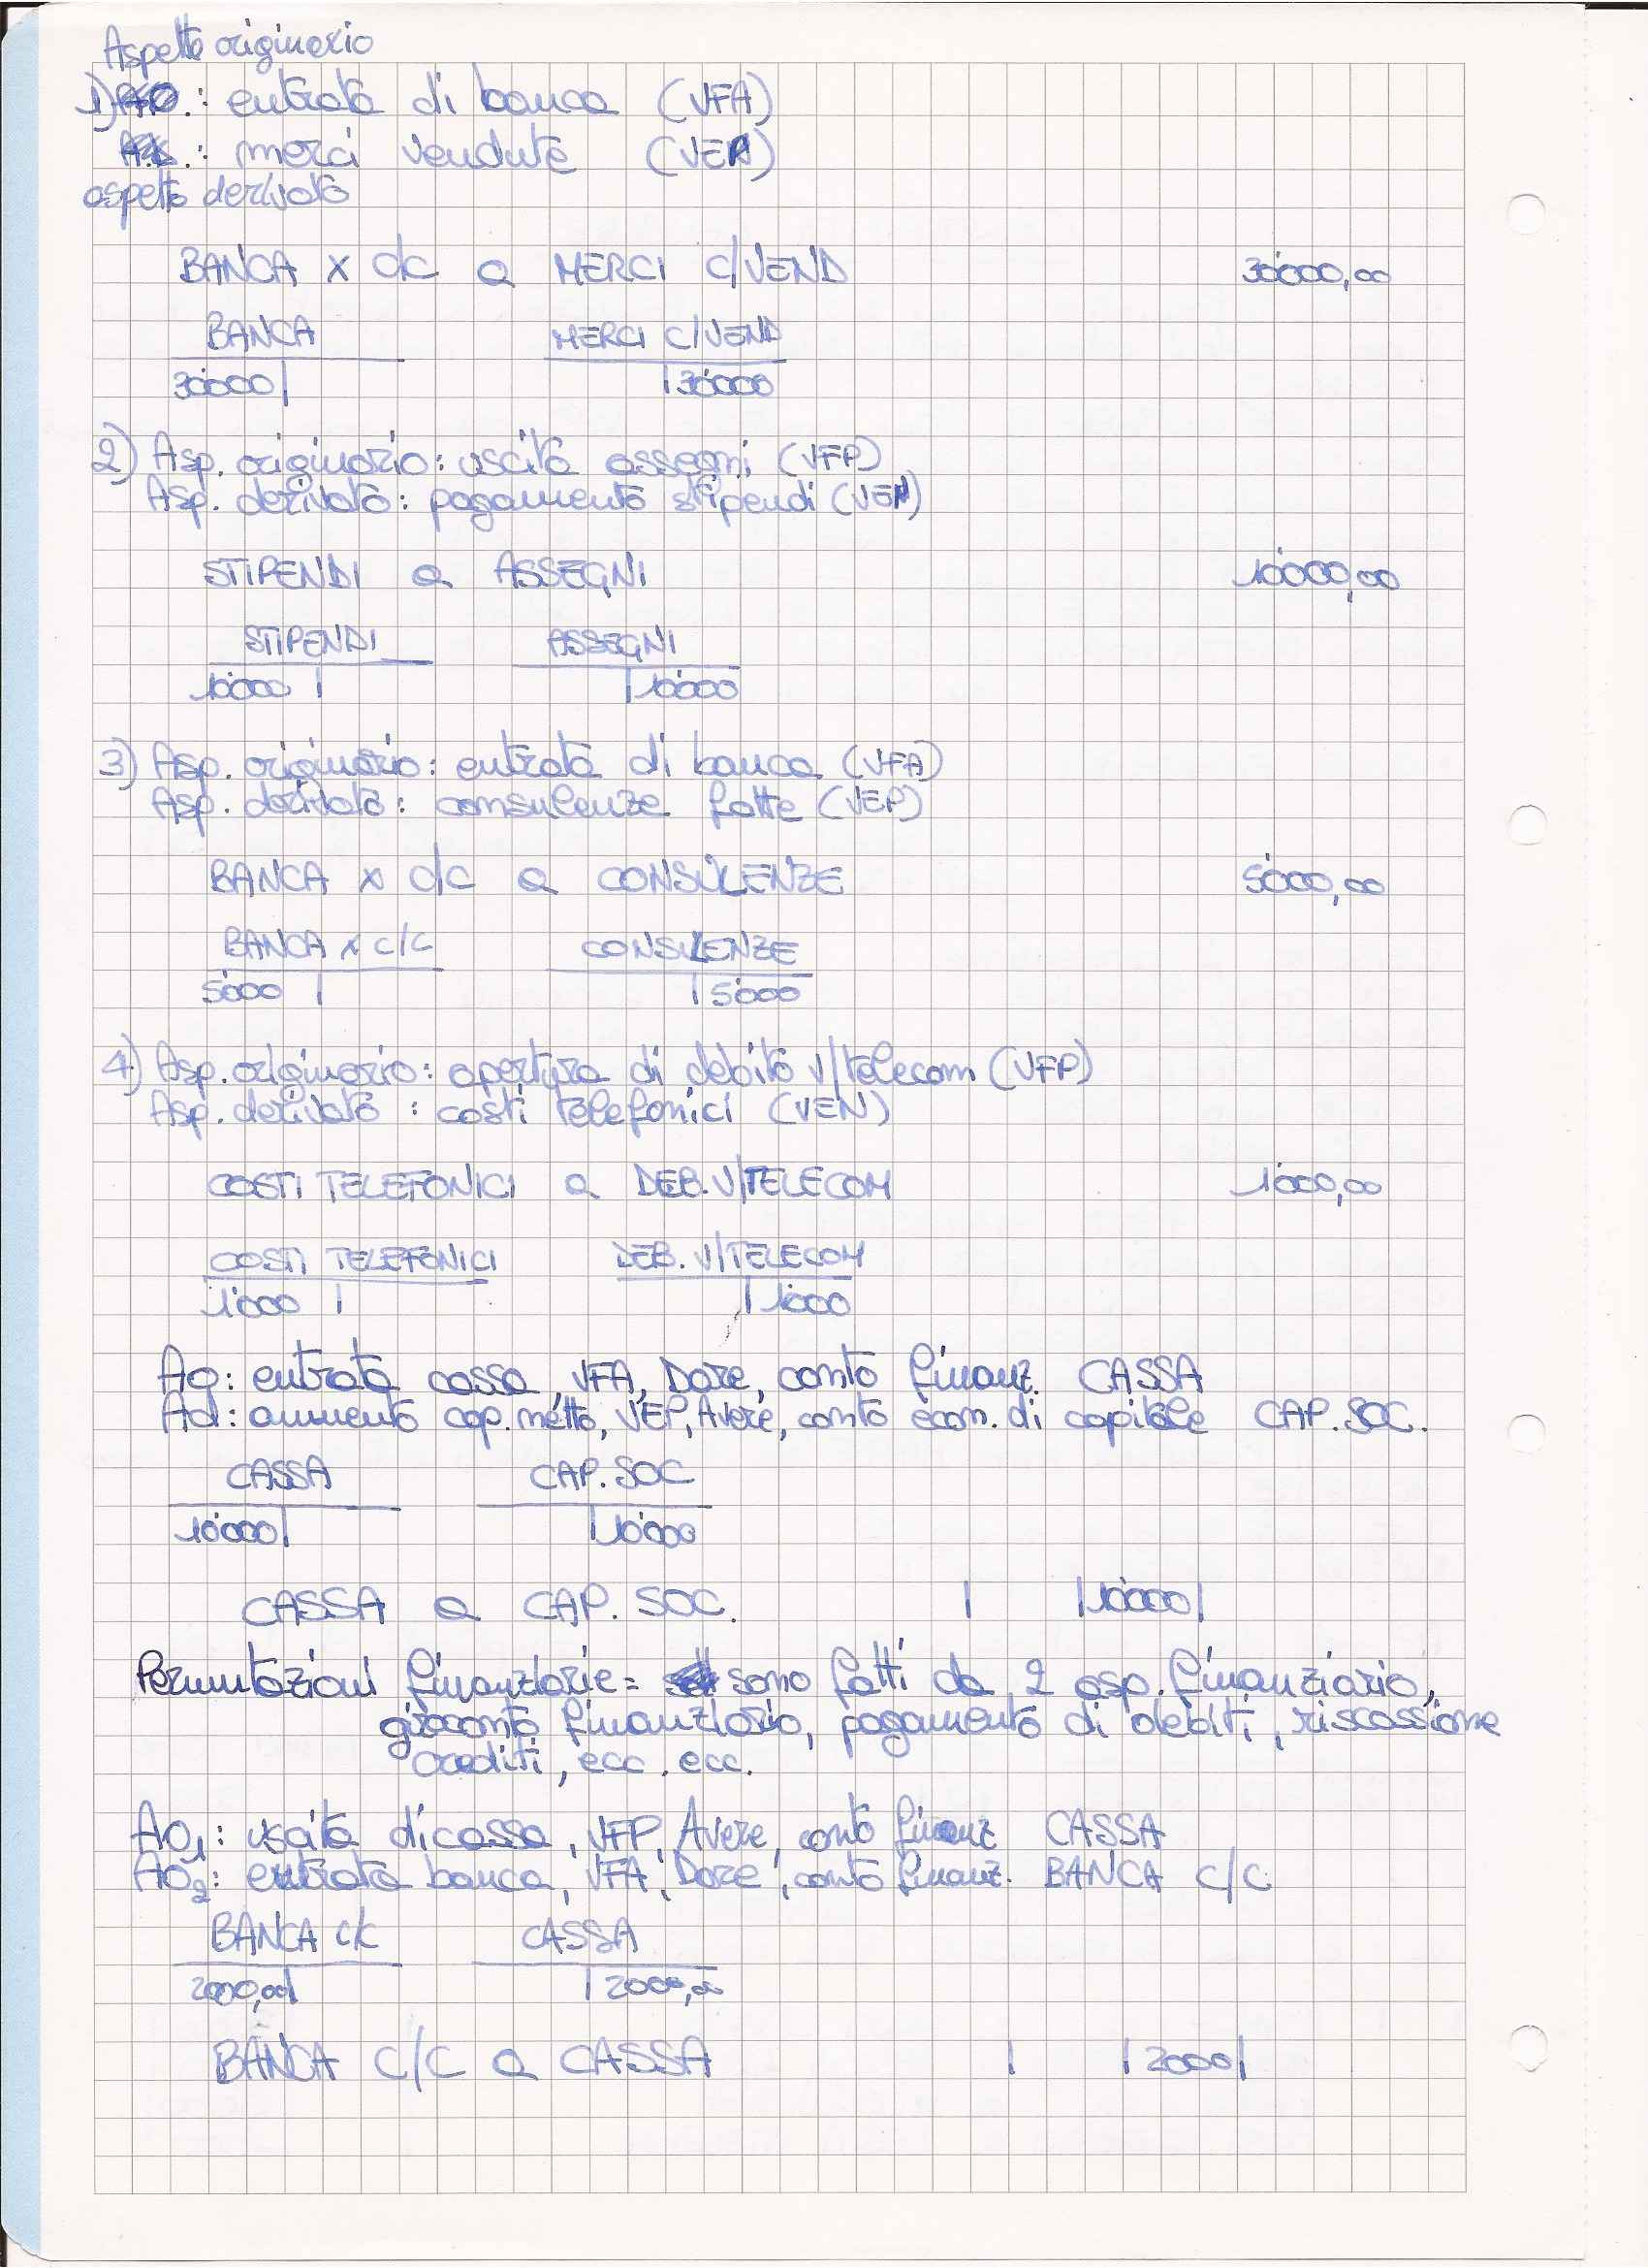 Aspetto originario
1) A.O.: entrata di banca (VFA)
: merci vendute (VEP)
aspetto derivato
BANCA x c/c a MERCI C/VEND 30'000,00
BANCA MERCI C/VEND
30'000 | | 30'000
2) Asp. originario: uscita assegni (VFP)
Asp. derivato: pagamento stipendi (VEN)
STIPENDI a ASSEGNI 10'000,00
STIPENDI ASSEGNI
10'000 | | 10'000
3) Asp. originario: entrata di banca (VFA)
Asp. derivato: consulenze fatte (VEP)
BANCA x c/c a CONSULENZE 5'000,00
BANCA x c/c CONSULENZE
5'000 | | 5'000
4) Asp. originario: apertura di debito v/telecom (VFP)
Asp. derivato: costi telefonici (VEN)
COSTI TELEFONICI a DEB. V/TELECOM 1'000,00
COSTI TELEFONICI DEB. V/TELECOM
1'000 | | 1'000
Ao: entrata cassa, VFA, Dare, conto finanz. CASSA
Ad: aumento cap. netto, VEP, Avere, conto econ. di capitale CAP. SOC.
CASSA CAP. SOC
10'000 | | 10'000
CASSA a CAP. SOC. | | 10'000 |
Permutazioni finanziarie = sono fatti da 2 asp. finanziario,
giroconto finanziario, pagamento di debiti, riscossione
crediti, ecc. ecc.
AO1: uscita di cassa, VFP, Avere, conto finanz CASSA
AO2: entrata banca, VFA, Dare, conto finanz. BANCA C/C
BANCA c/c CASSA
2000,00 | | 2000,00
BANCA C/C a CASSA | | 2000 |